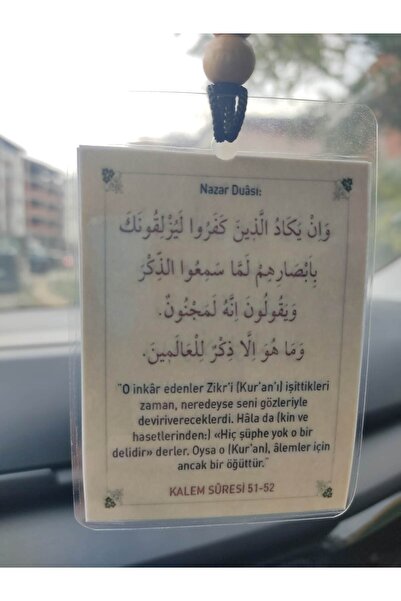 Nazar Duâsı:
وَاِنْ يَكَادُ الَّذِينَ كَفَرُوا لَيُزْلِقُونَكَ
بِاَبْصَارِهِمْ لَمَّا سَمِعُوا الذِّكْرَ
وَيَقُولُونَ اِنَّهُ لَمَجْنُونٌ.
وَمَا هُوَ اِلَّا ذِكْرٌ لِلْعَالَمِينَ.
"O inkâr edenler Zikr'i (Kur'an'ı) işittikleri
zaman, neredeyse seni gözleriyle
devirivereceklerdi. Hâla da (kin ve
hasetlerinden:) «Hiç şüphe yok o bir
delidir» derler. Oysa o (Kur'an), âlemler için
ancak bir öğüttür."
KALEM SÛRESİ 51-52